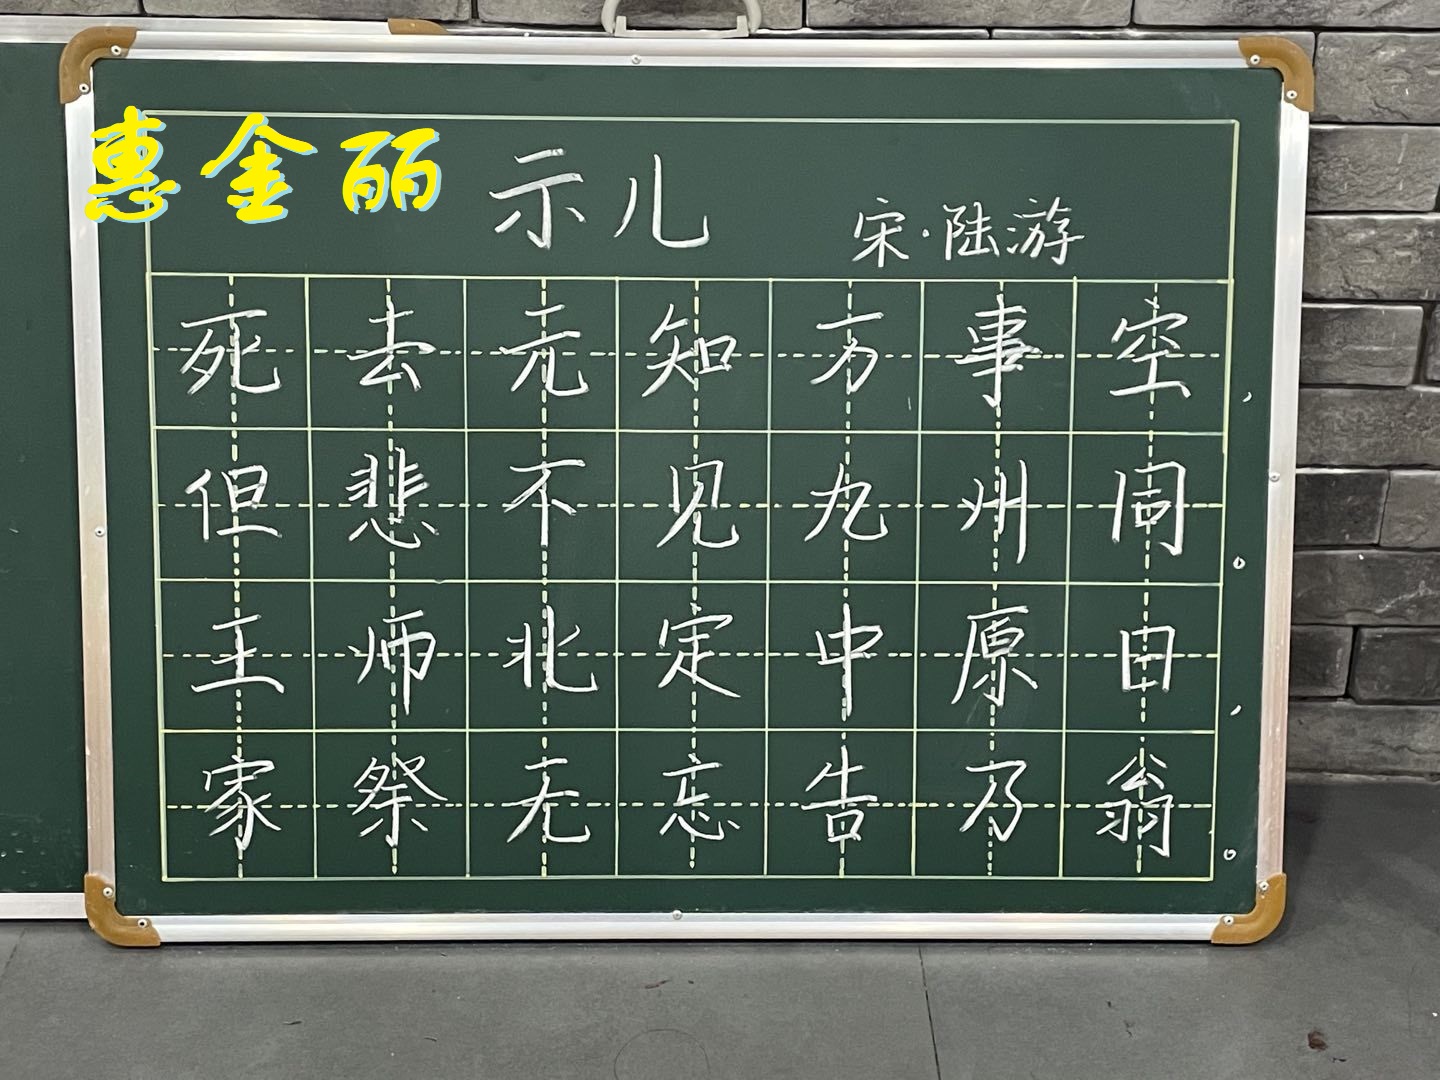 惠金丽
示儿
宋·陆游
死去元知万事空，
但悲不见九州同。
王师北定中原日，
家祭无忘告乃翁。